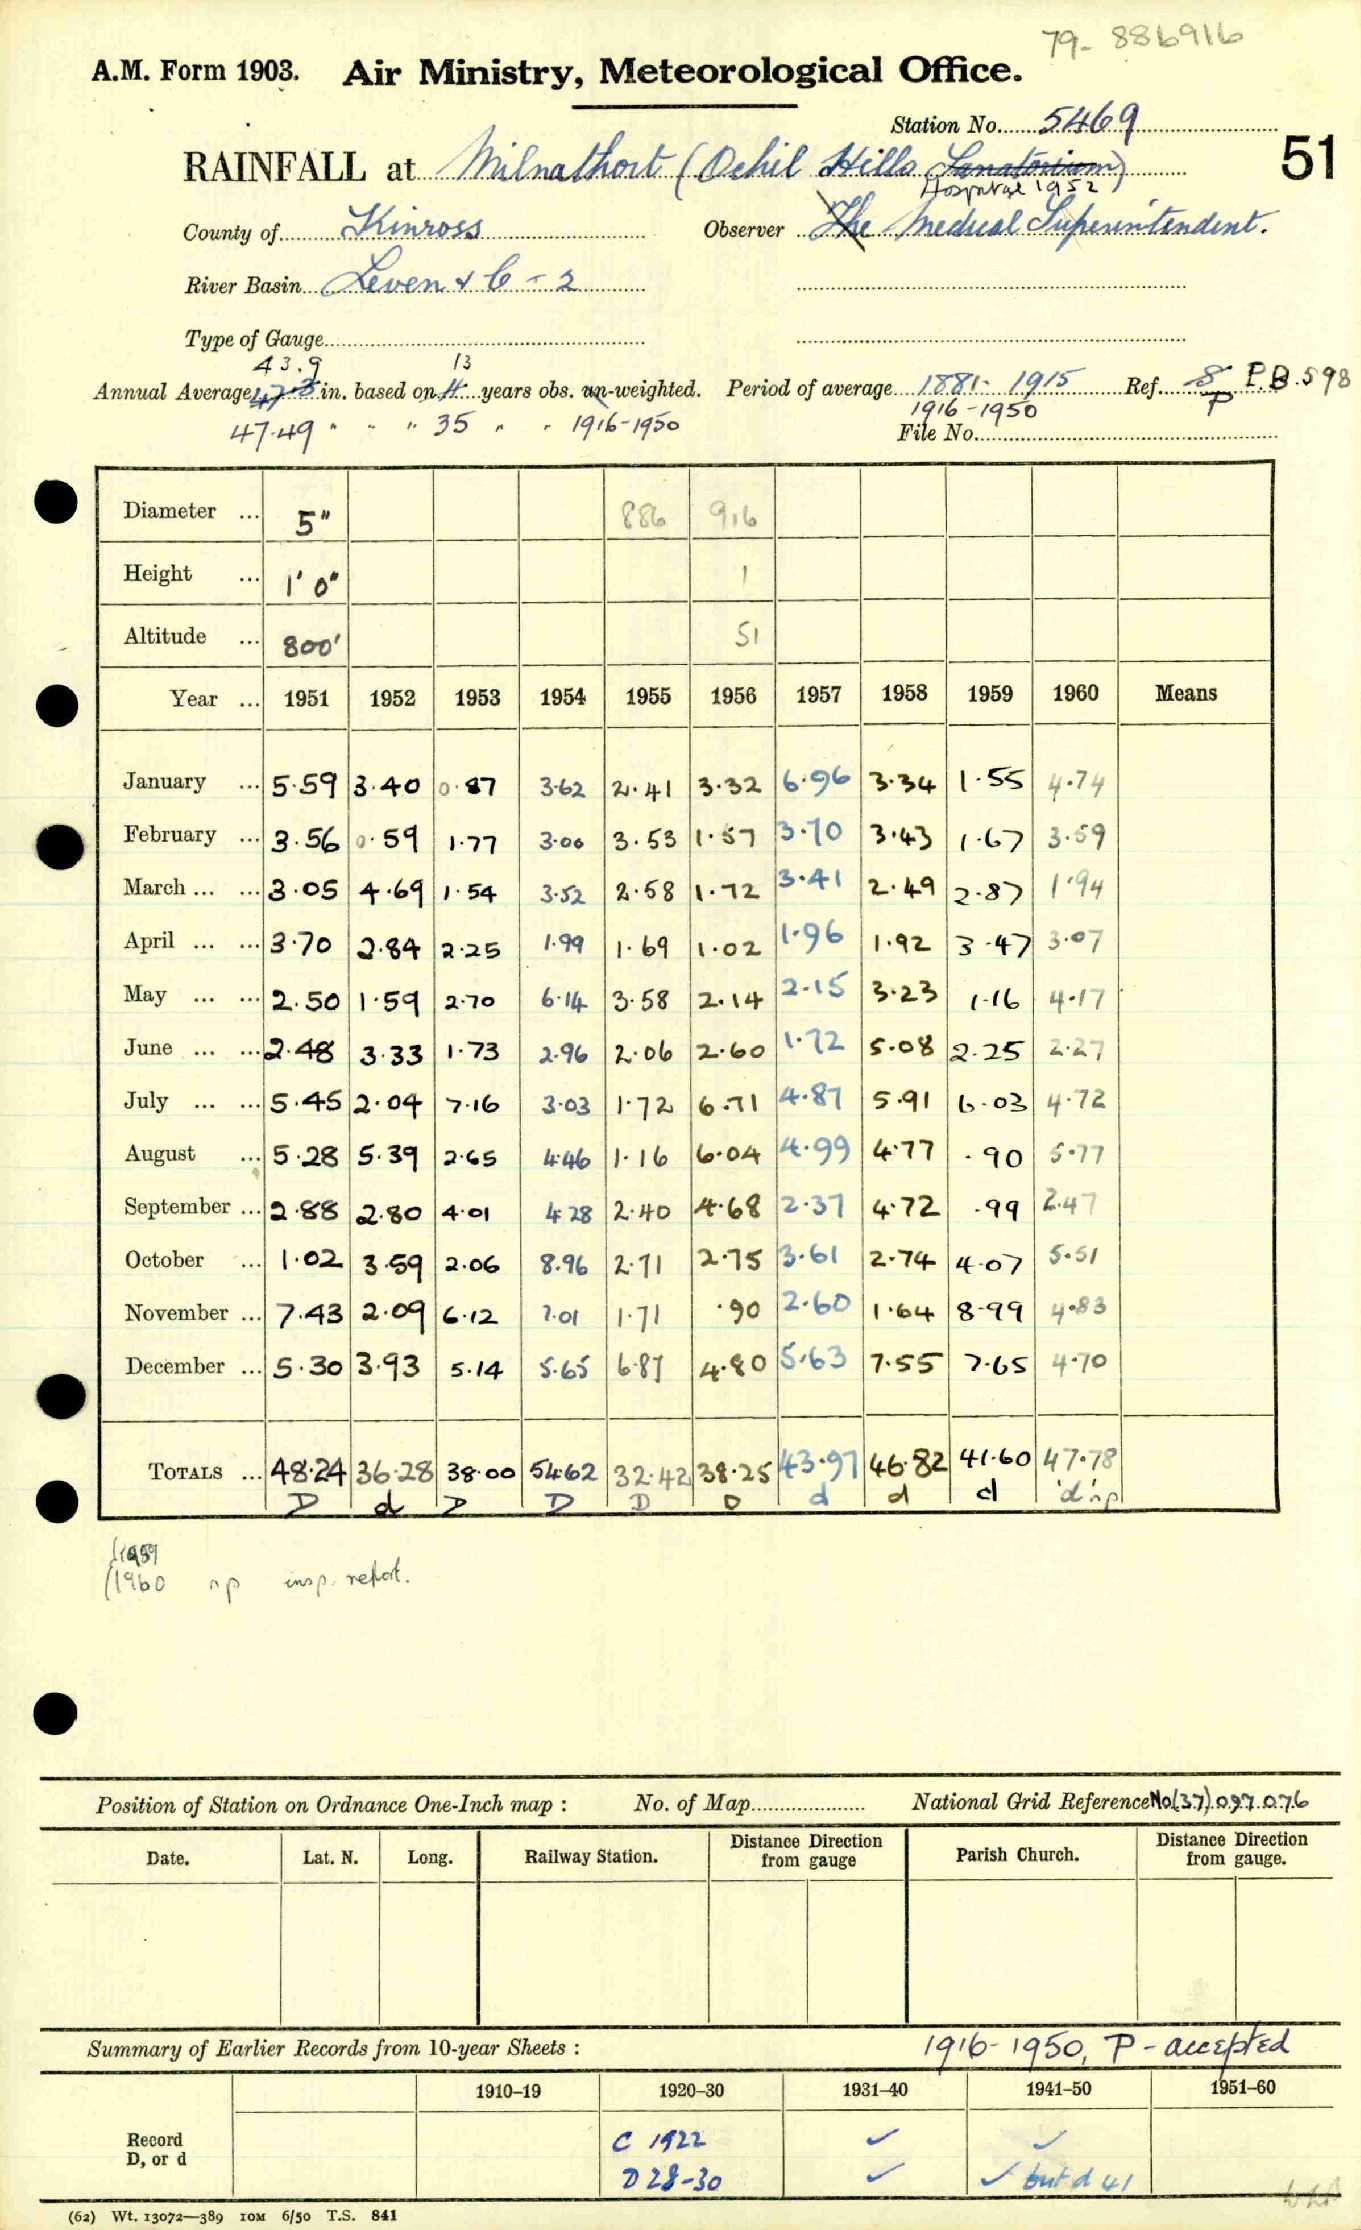 79- 886916
A.M. Form 1903. Air Ministry, Meteorological Office.
Station No. 5469
51
RAINFALL at Milnathort (Ochil Hills Sanatorium)
Hospital 1952
County of Kinross Observer The Medical Superintendent.
River Basin Leven & C - 2
Type of Gauge
43.9 13
Annual Average 47.3 in. based on 4 years obs. un-weighted. Period of average 1881-1915 Ref. S P.B. 598
1916-1950 P
47.49 " " " 35 " " 1916-1950
File No.
Diameter ... 5" 886 916
Height ... 1' 0" 1
Altitude ... 800' 51
Year ... 1951 1952 1953 1954 1955 1956 1957 1958 1959 1960 Means
January ... 5.59 3.40 0.87 3.62 2.41 3.32 6.96 3.34 1.55 4.74
February ... 3.56 0.59 1.77 3.00 3.53 1.57 3.70 3.43 1.67 3.59
March ... ... 3.05 4.69 1.54 3.52 2.58 1.72 3.41 2.49 2.87 1.94
April ... ... 3.70 2.84 2.25 1.99 1.69 1.02 1.96 1.92 3.47 3.07
May ... ... 2.50 1.59 2.70 6.14 3.58 2.14 2.15 3.23 1.16 4.17
June ... ... 2.48 3.33 1.73 2.96 2.06 2.60 1.72 5.08 2.25 2.27
July ... ... 5.45 2.04 7.16 3.03 1.72 6.71 4.87 5.91 6.03 4.72
August ... 5.28 5.39 2.65 4.46 1.16 6.04 4.99 4.77 .90 5.77
September ... 2.88 2.80 4.01 4.28 2.40 4.68 2.37 4.72 .99 2.47
October ... 1.02 3.59 2.06 8.96 2.71 2.75 3.61 2.74 4.07 5.51
November ... 7.43 2.09 6.12 7.01 1.71 .90 2.60 1.64 8.99 4.83
December ... 5.30 3.93 5.14 5.65 6.87 4.80 5.63 7.55 7.65 4.70
TOTALS ... 48.24 36.28 38.00 54.62 32.42 38.25 43.97 46.82 41.60 47.78
D d D D D D d d d 'd' np
1959
1960 np insp. report.
Position of Station on Ordnance One-Inch map : No. of Map National Grid Reference No(37) 097 076
Date. Lat. N. Long. Railway Station. Distance Direction from gauge Parish Church. Distance Direction from gauge.
Summary of Earlier Records from 10-year Sheets : 1916-1950, P - accepted
1910–19 1920–30 1931–40 1941–50 1951–60
Record C 1922 ✓ ✓
D, or d D 28-30 ✓ ✓ but d 41
(62) Wt. 13072—389 10M 6/50 T.S. 841